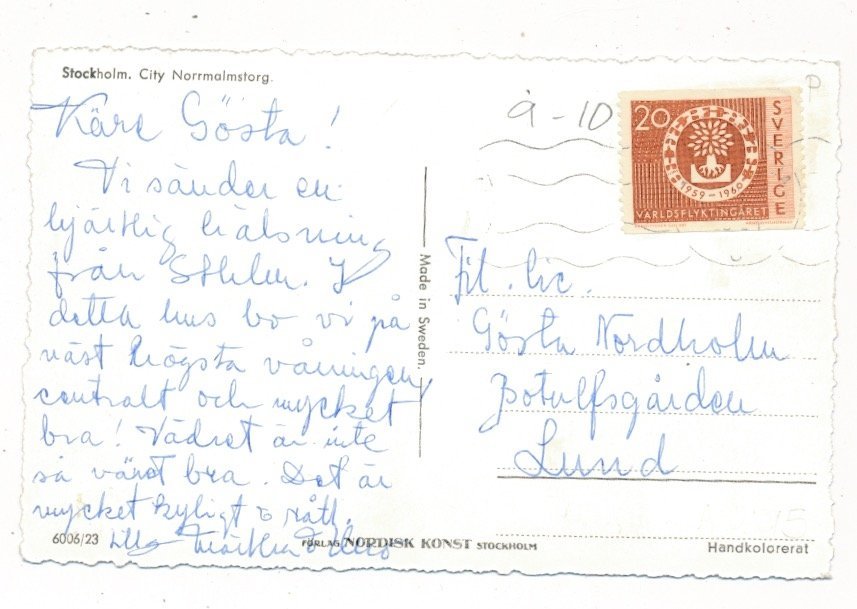 Stockholm. City Norrmalmstorg.
Käre Gösta!
Vi sänder en
hjärtlig hälsning
från Sthlm. I
detta hus bo vi på
näst högsta våningen,
centralt och mycket
bra! Vädret är inte
så värst bra. Det är
mycket kyligt o rått.
6006/23
FÖRLAG NORDISK KONST STOCKHOLM
Made in Sweden.
9-10
20
SVERIGE
1959-1960
VÄRLDSFLYKTINGÅRET
Fil. lic.
Gösta Nordholm
Botulfsgården
Lund
Handkolorerat